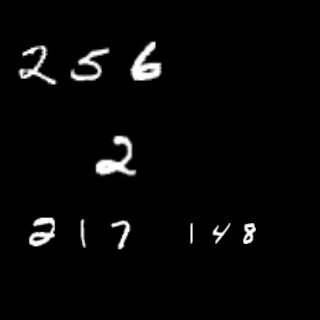 256
2
217 148